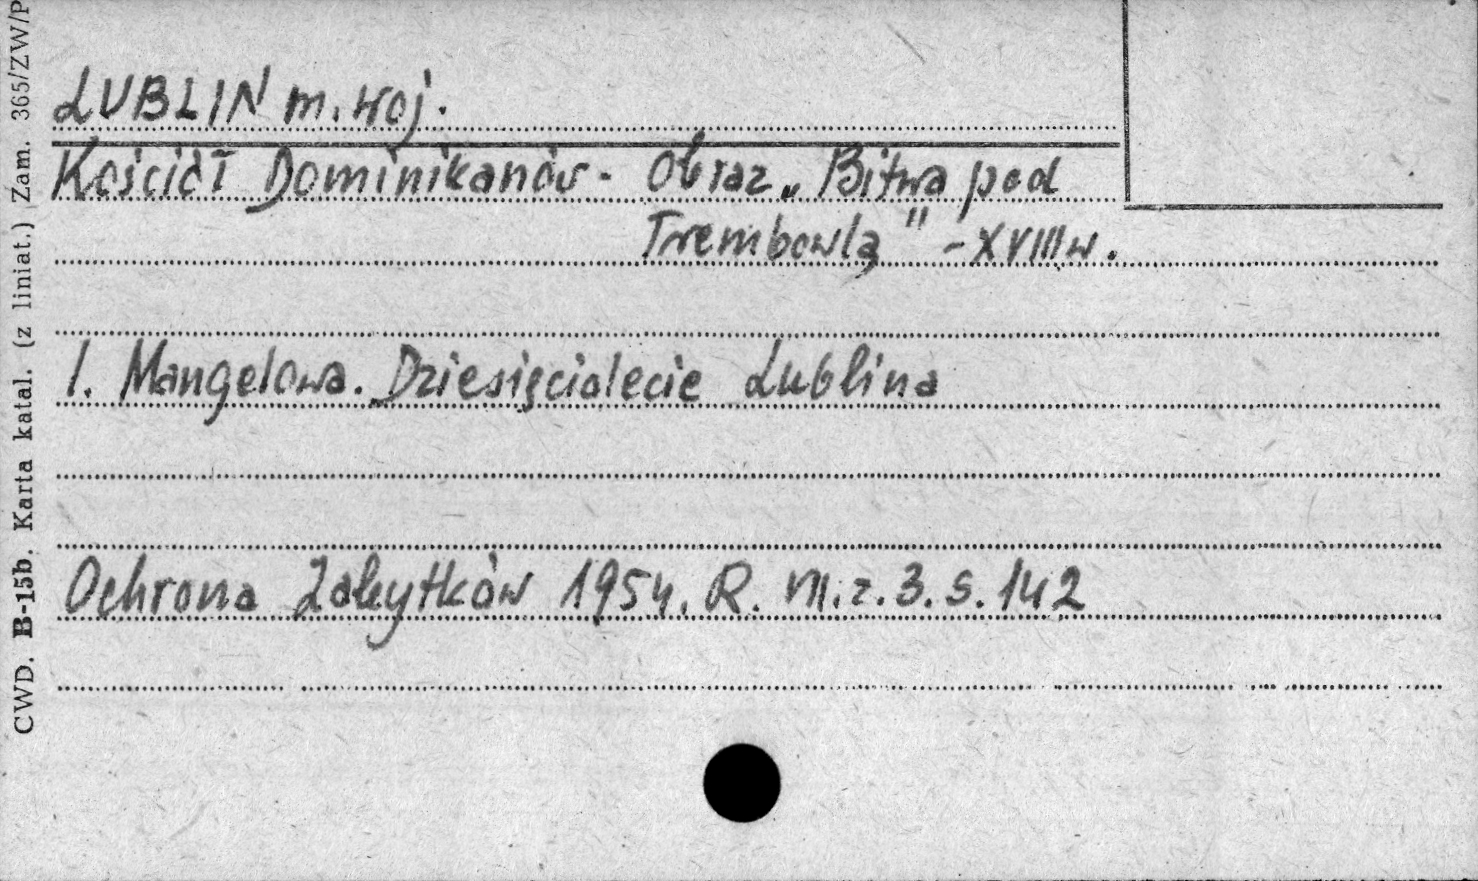 LUBLIN m. woj.
Kościół Dominikanów - Obraz „Bitwa pod
Trembowlą" - XVIII w.
I. Mangelowa. Dziesięciolecie Lublina
Ochrona Zabytków 1954. R. VII. z. 3. s. 142
CWD. B-15b. Karta katal. (z liniat.) Zam. 365/ZW/P